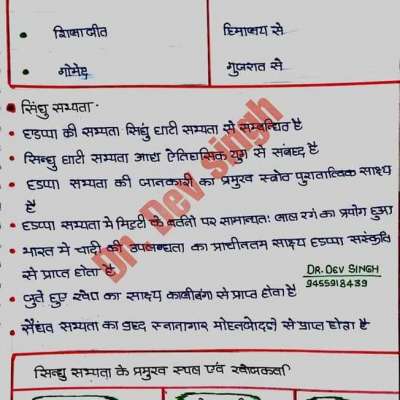 शिलाजीत हिमालय से
गोमेद गुजरात से
सिंधु सभ्यता -
हडप्पा की सभ्यता सिंधु घाटी सभ्यता से सम्बन्धित है
सिन्धु घाटी सभ्यता आद्य ऐतिहासिक युग से संबद्द है
हडप्पा सभ्यता की जानकारी का प्रमुख स्त्रोत पुरातात्विक साक्ष्य
है
हडप्पा सभ्यता मे मिट्टी के बर्तनो पर सामान्यतः लाल रंग का प्रयोग हुआ
भारत मे चांदी की उपलब्धता का प्राचीनतम साक्ष्य हडप्पा संस्कृति
से प्राप्त होता है
DR. DEV SINGH
9455918439
जुते हुए खेत का साक्ष्य कालीबंगा से प्राप्त होता है
सैंधव सभ्यता का वृहद स्नानागार मोहनजोदड़ो से प्राप्त होता है
सिन्धु सभ्यता के प्रमुख स्थल एवं खोजकर्ता
Dr. Dev singh